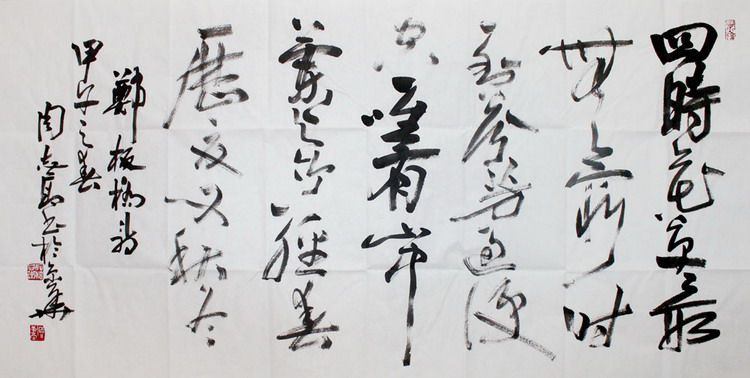 四時花草最
無窮时
到芬芳過便
空唯有山中
蘭與竹經春
歷夏又秋冬
鄭板橋詩
甲午之春
周志书於金華